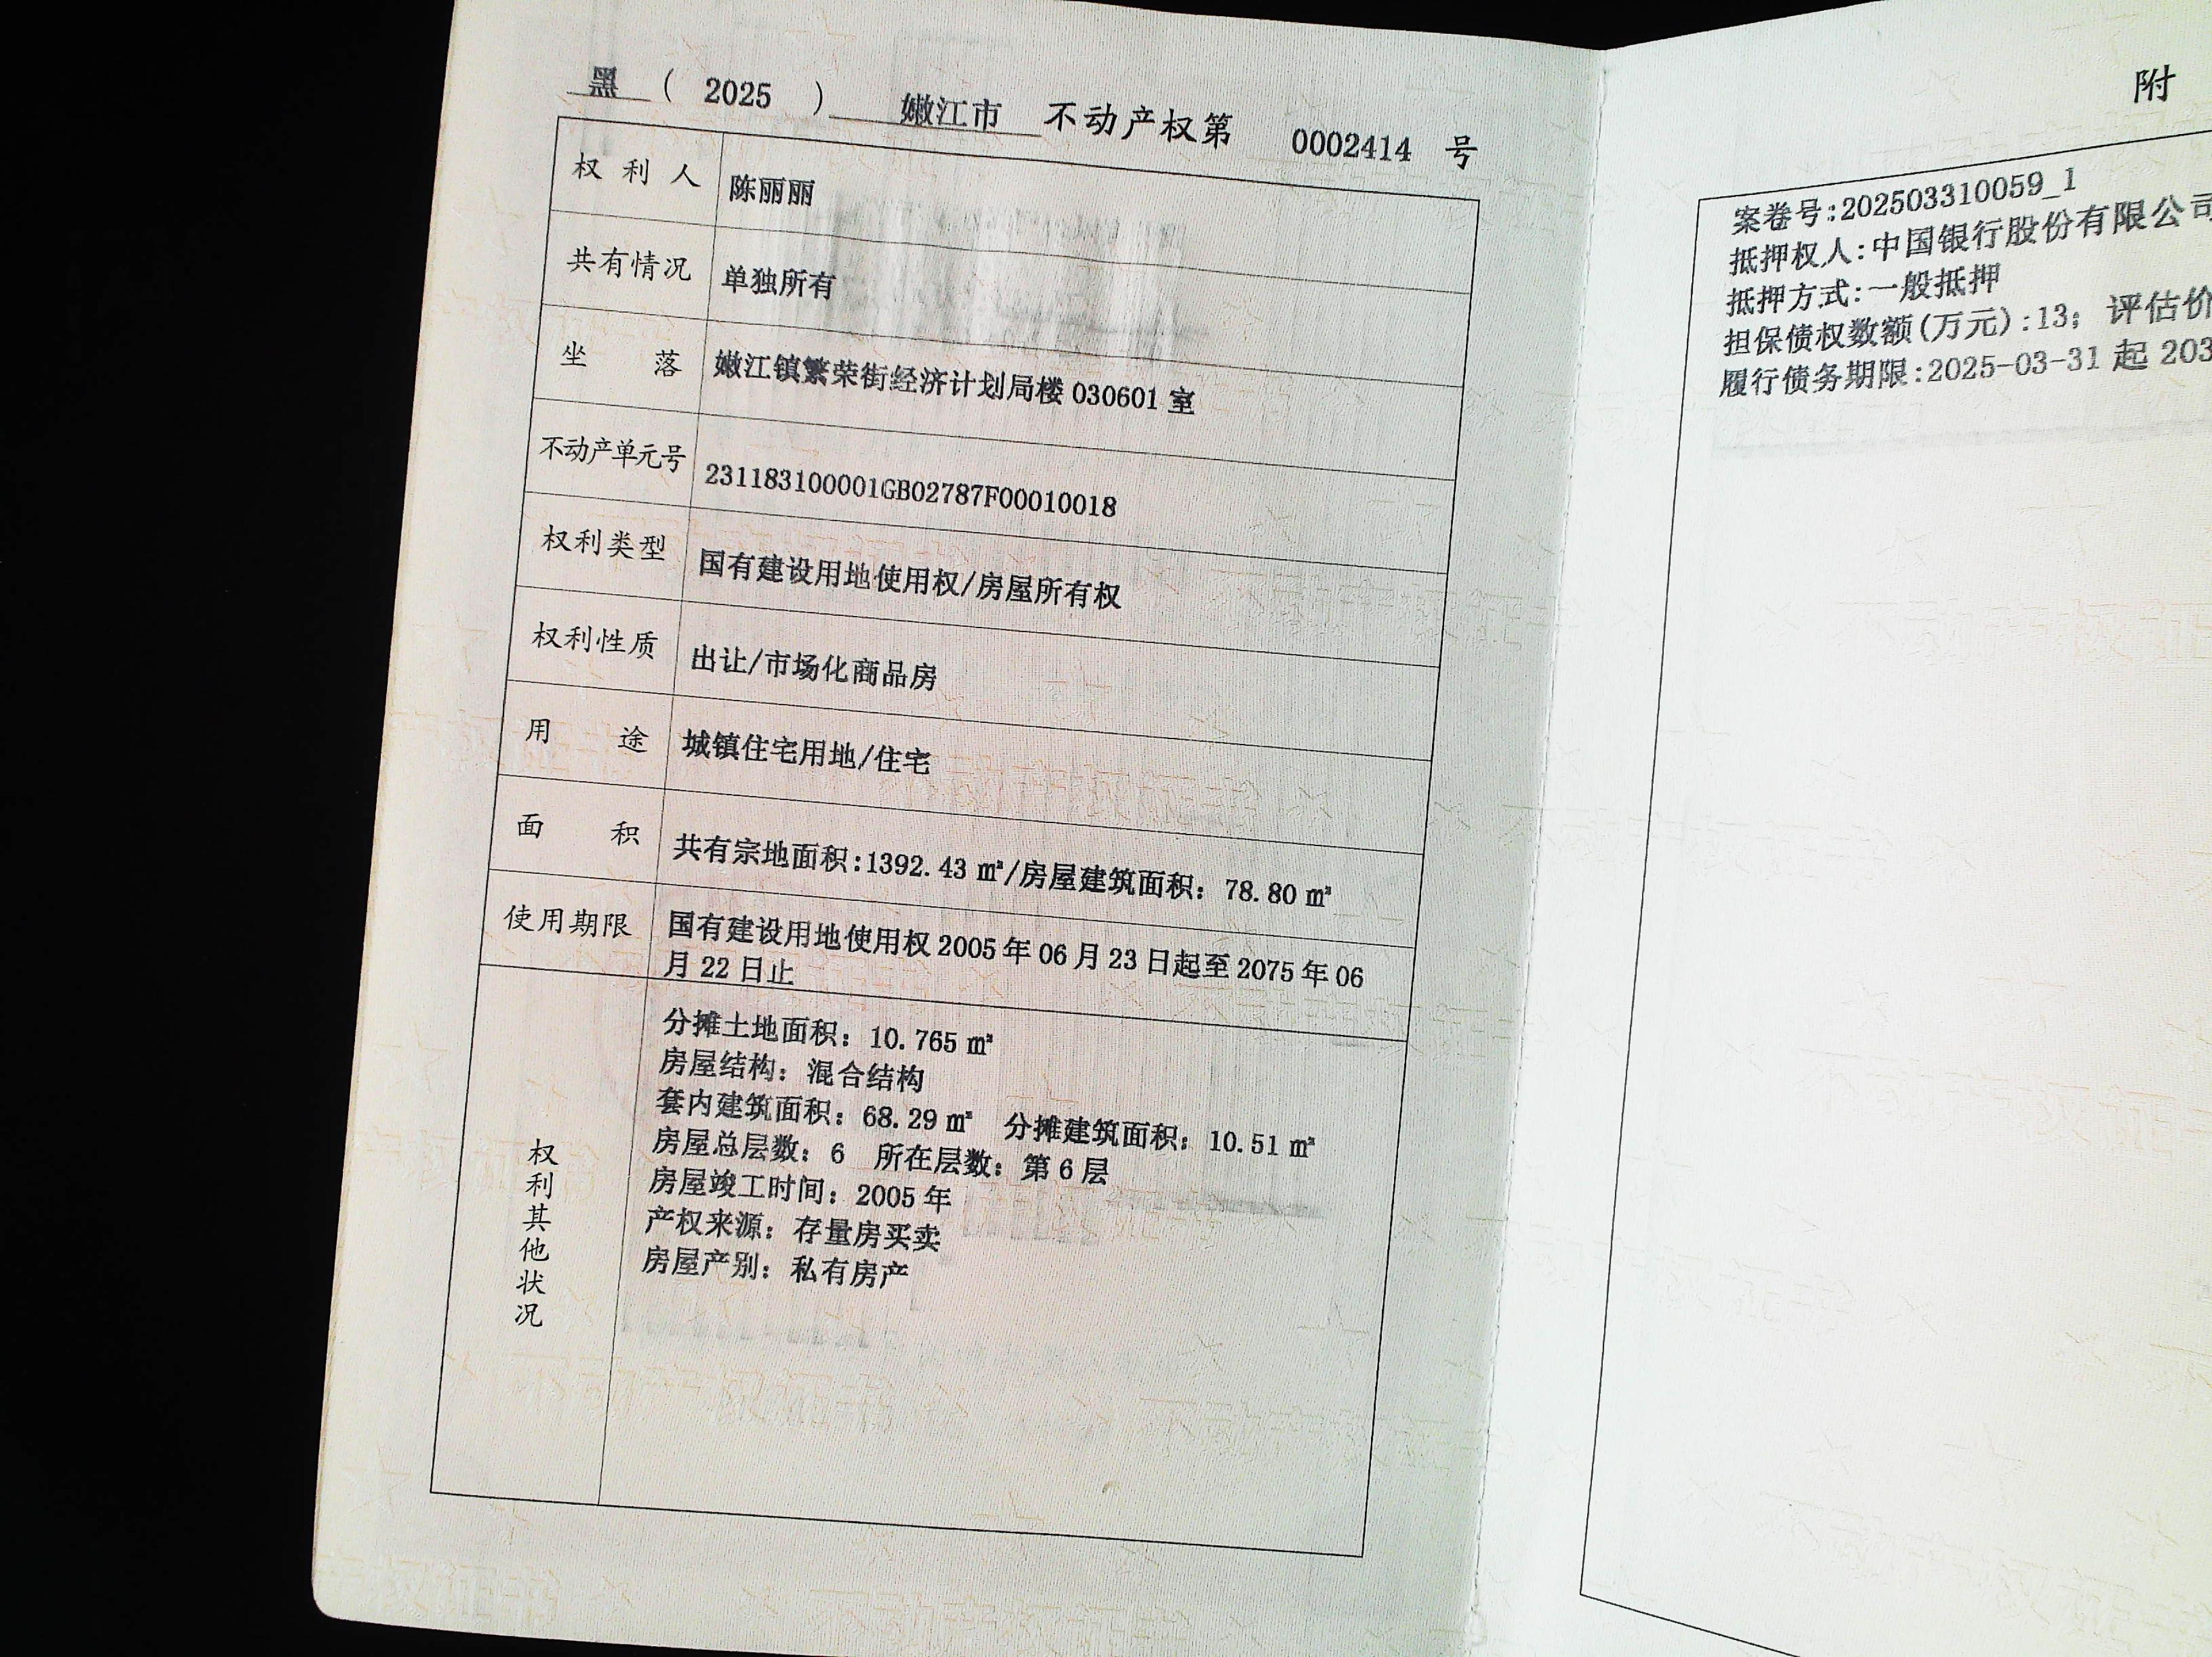 黑 ( 2025 ) 嫩江市 不动产权第 0002414 号
权利人 陈丽丽
共有情况 单独所有
坐落 嫩江镇繁荣街经济计划局楼 030601 室
不动产单元号 231183100001GB02787F00010018
权利类型 国有建设用地使用权/房屋所有权
权利性质 出让/市场化商品房
用途 城镇住宅用地/住宅
面积 共有宗地面积:1392.43 ㎡/房屋建筑面积：78.80 ㎡
使用期限 国有建设用地使用权 2005 年 06 月 23 日起至 2075 年 06
月 22 日止
权利其他状况
分摊土地面积：10.765 ㎡
房屋结构：混合结构
套内建筑面积：68.29 ㎡ 分摊建筑面积：10.51 ㎡
房屋总层数：6 所在层数：第 6 层
房屋竣工时间：2005 年
产权来源：存量房买卖
房屋产别：私有房产
附
案卷号:202503310059_1
抵押权人:中国银行股份有限公司
抵押方式:一般抵押
担保债权数额(万元):13；评估价
履行债务期限:2025-03-31 起 203